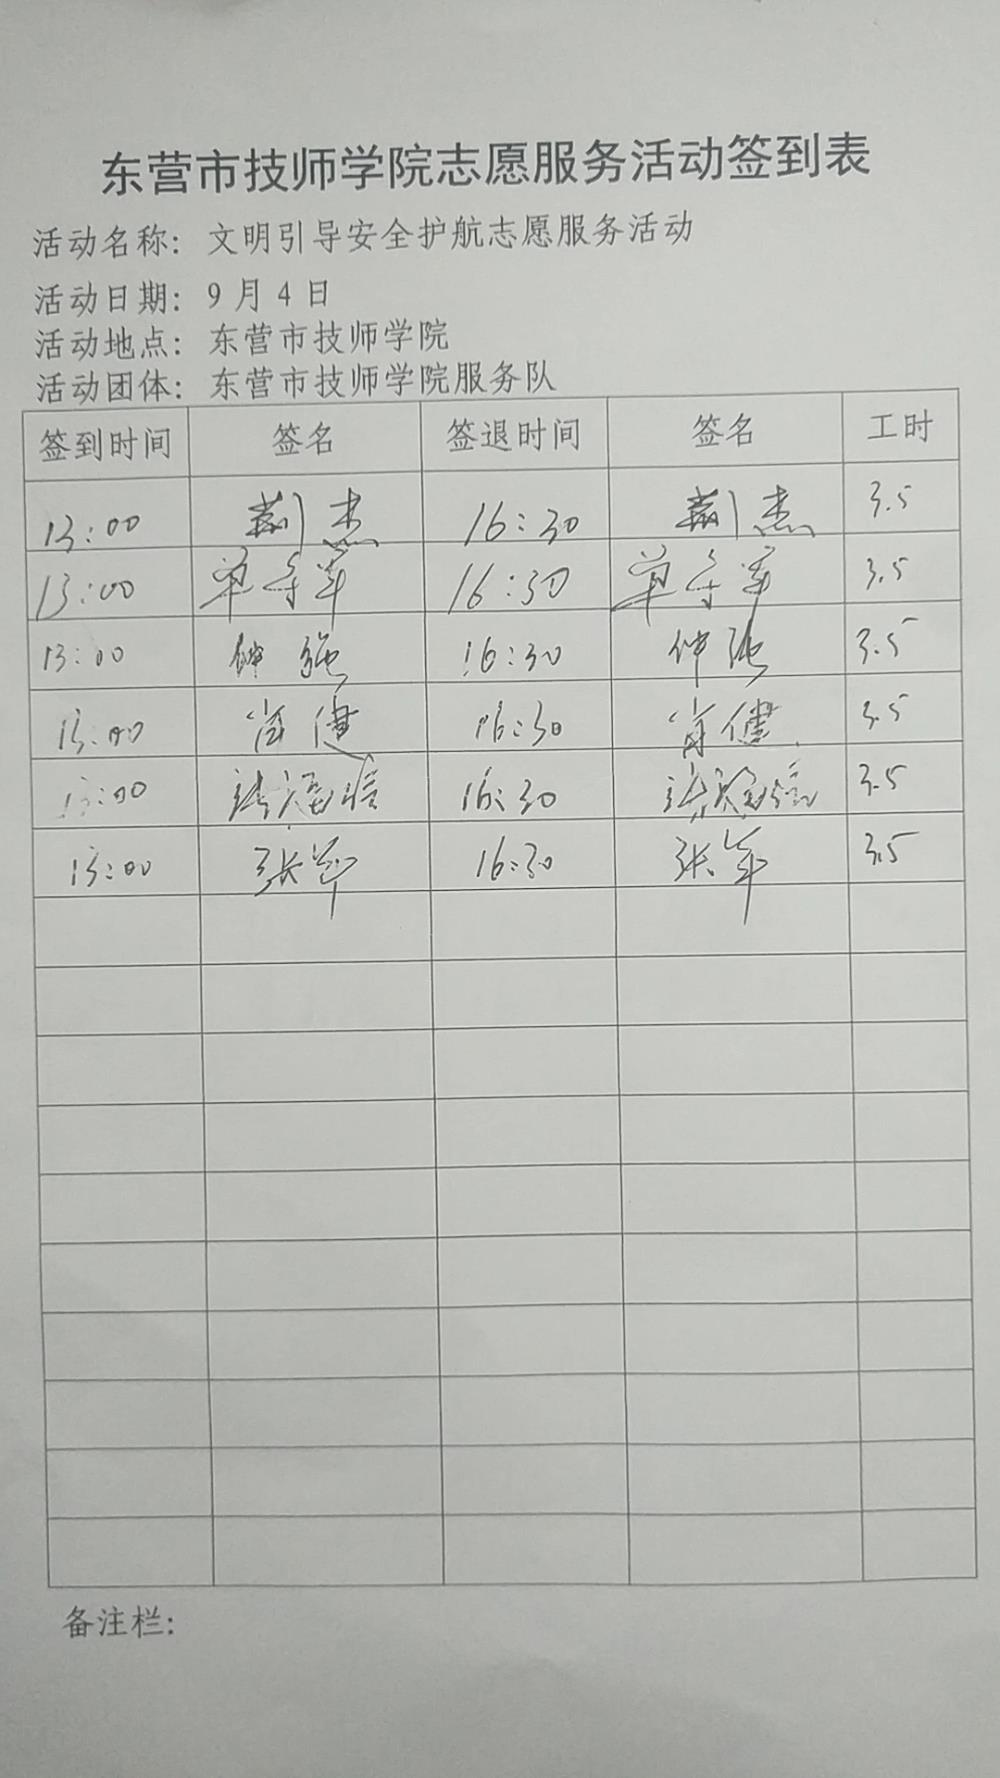 东营市技师学院志愿服务活动签到表
活动名称：文明引导安全护航志愿服务活动
活动日期：9月4日
活动地点：东营市技师学院
活动团体：东营市技师学院服务队
签到时间 签名 签退时间 签名 工时
13:00 荆杰 16:30 荆杰 3.5
13:00 单 军 16:30 单 军 3.5
13:00 钟强 16:30 钟强 3.5
13:00 肖健 16:30 肖健 3.5
13:00 16:30 3.5
13:00 张军 16:30 张军 3.5
备注栏：